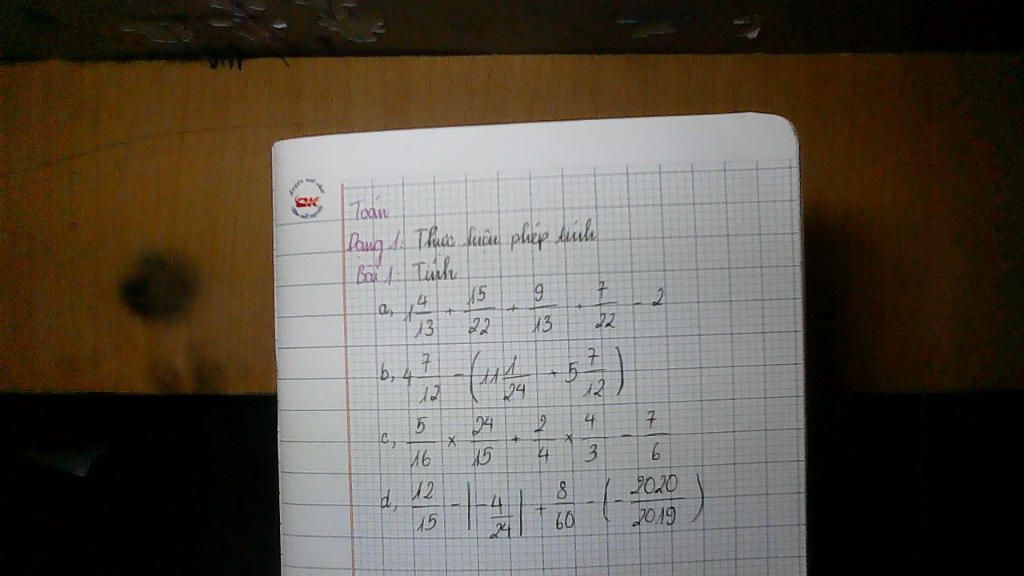 Toán
Dạng 1: Thực hiện phép tính
Bài 1: Tính
a, 1 4/13 + 15/22 + 9/13 + 7/22 - 2
b, 4 7/12 - (11 1/24 + 5 7/12)
c, 5/16 × 24/15 + 2/4 × 4/3 - 7/6
d, 12/15 - |-4/24| + 8/60 - (-2020/2019)